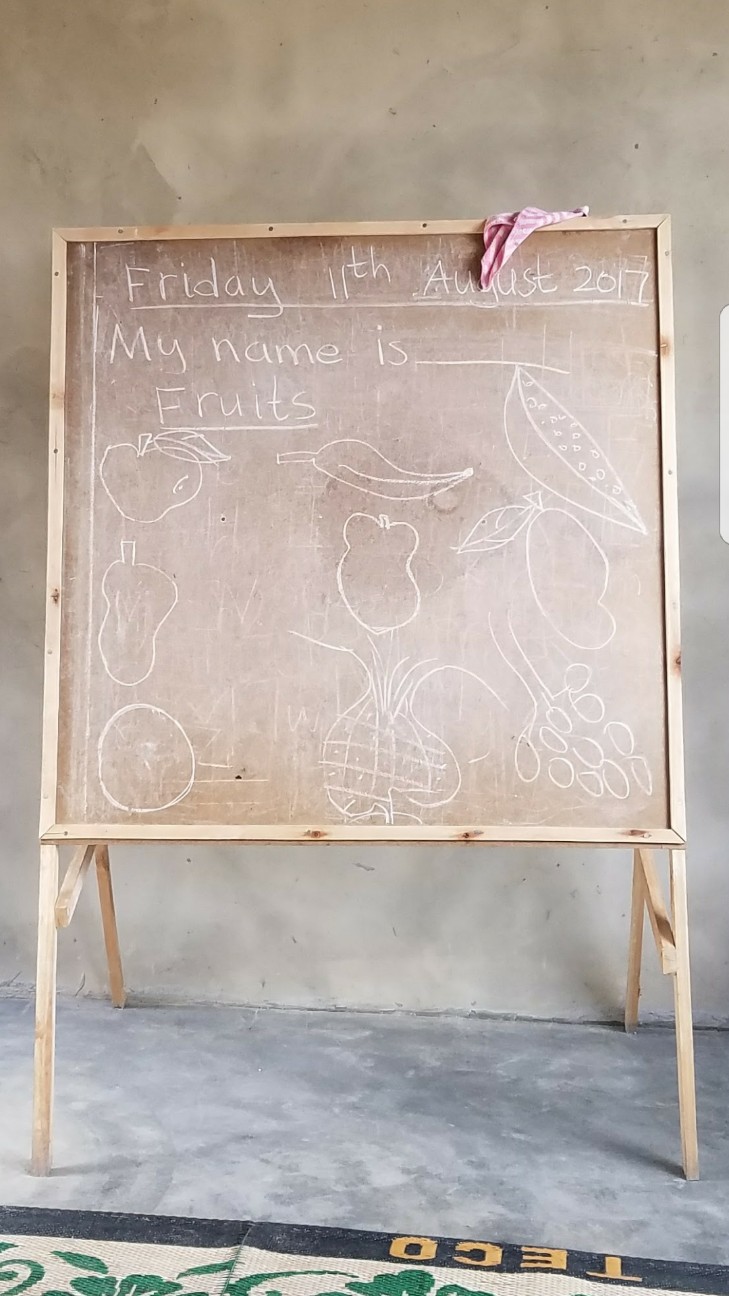 Friday 11th August 2017
My name is
Fruits
TECO